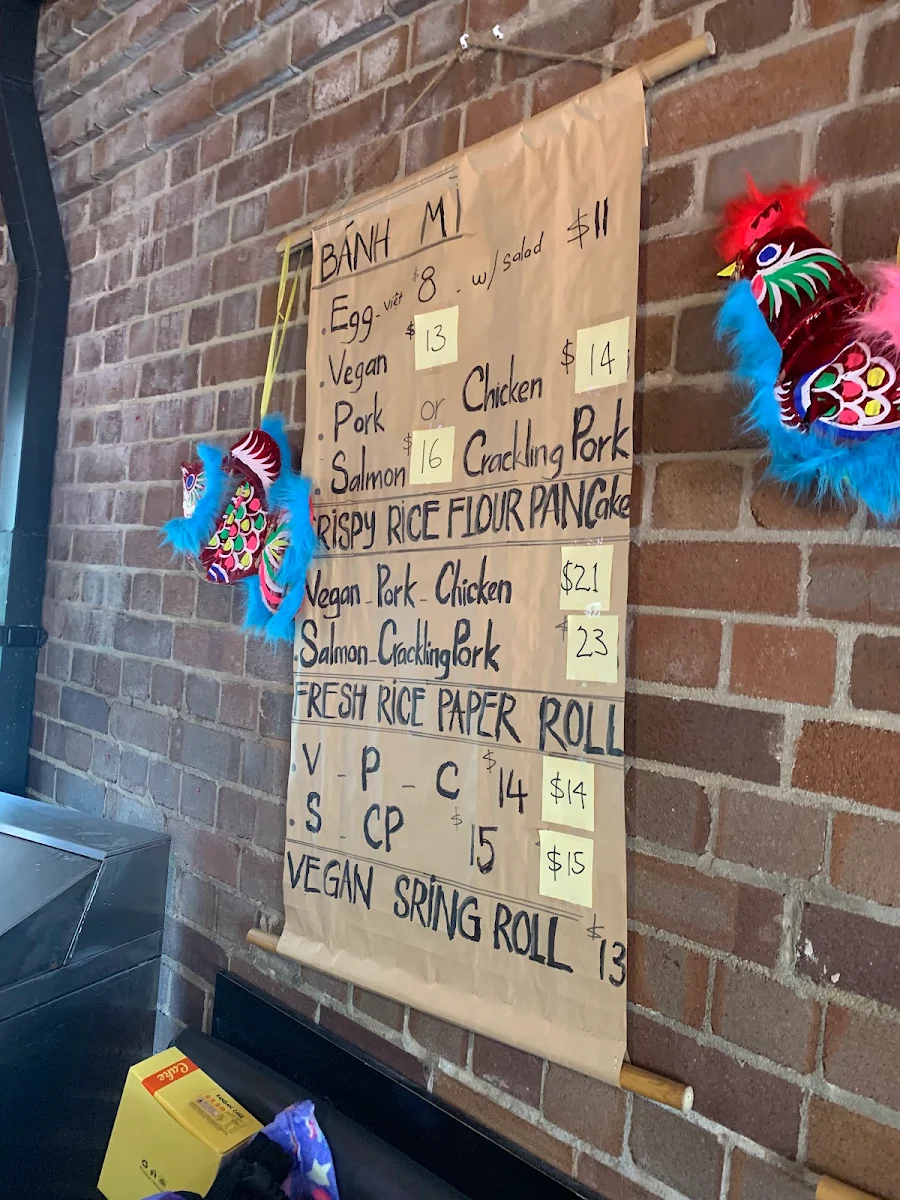 BÁNH MÌ
. Egg - việt $8 - w/ salad $11
. Vegan $13
. Pork or Chicken $14
. Salmon $16 Crackling Pork
RISPY RICE FLOUR PANCake
Vegan - Pork - Chicken $21
. Salmon - Crackling Pork $23
FRESH RICE PAPER ROLL
. V - P - C $14 $14
. S - CP $15 $15
VEGAN SRING ROLL $13
Cake
PANDAN CAKE